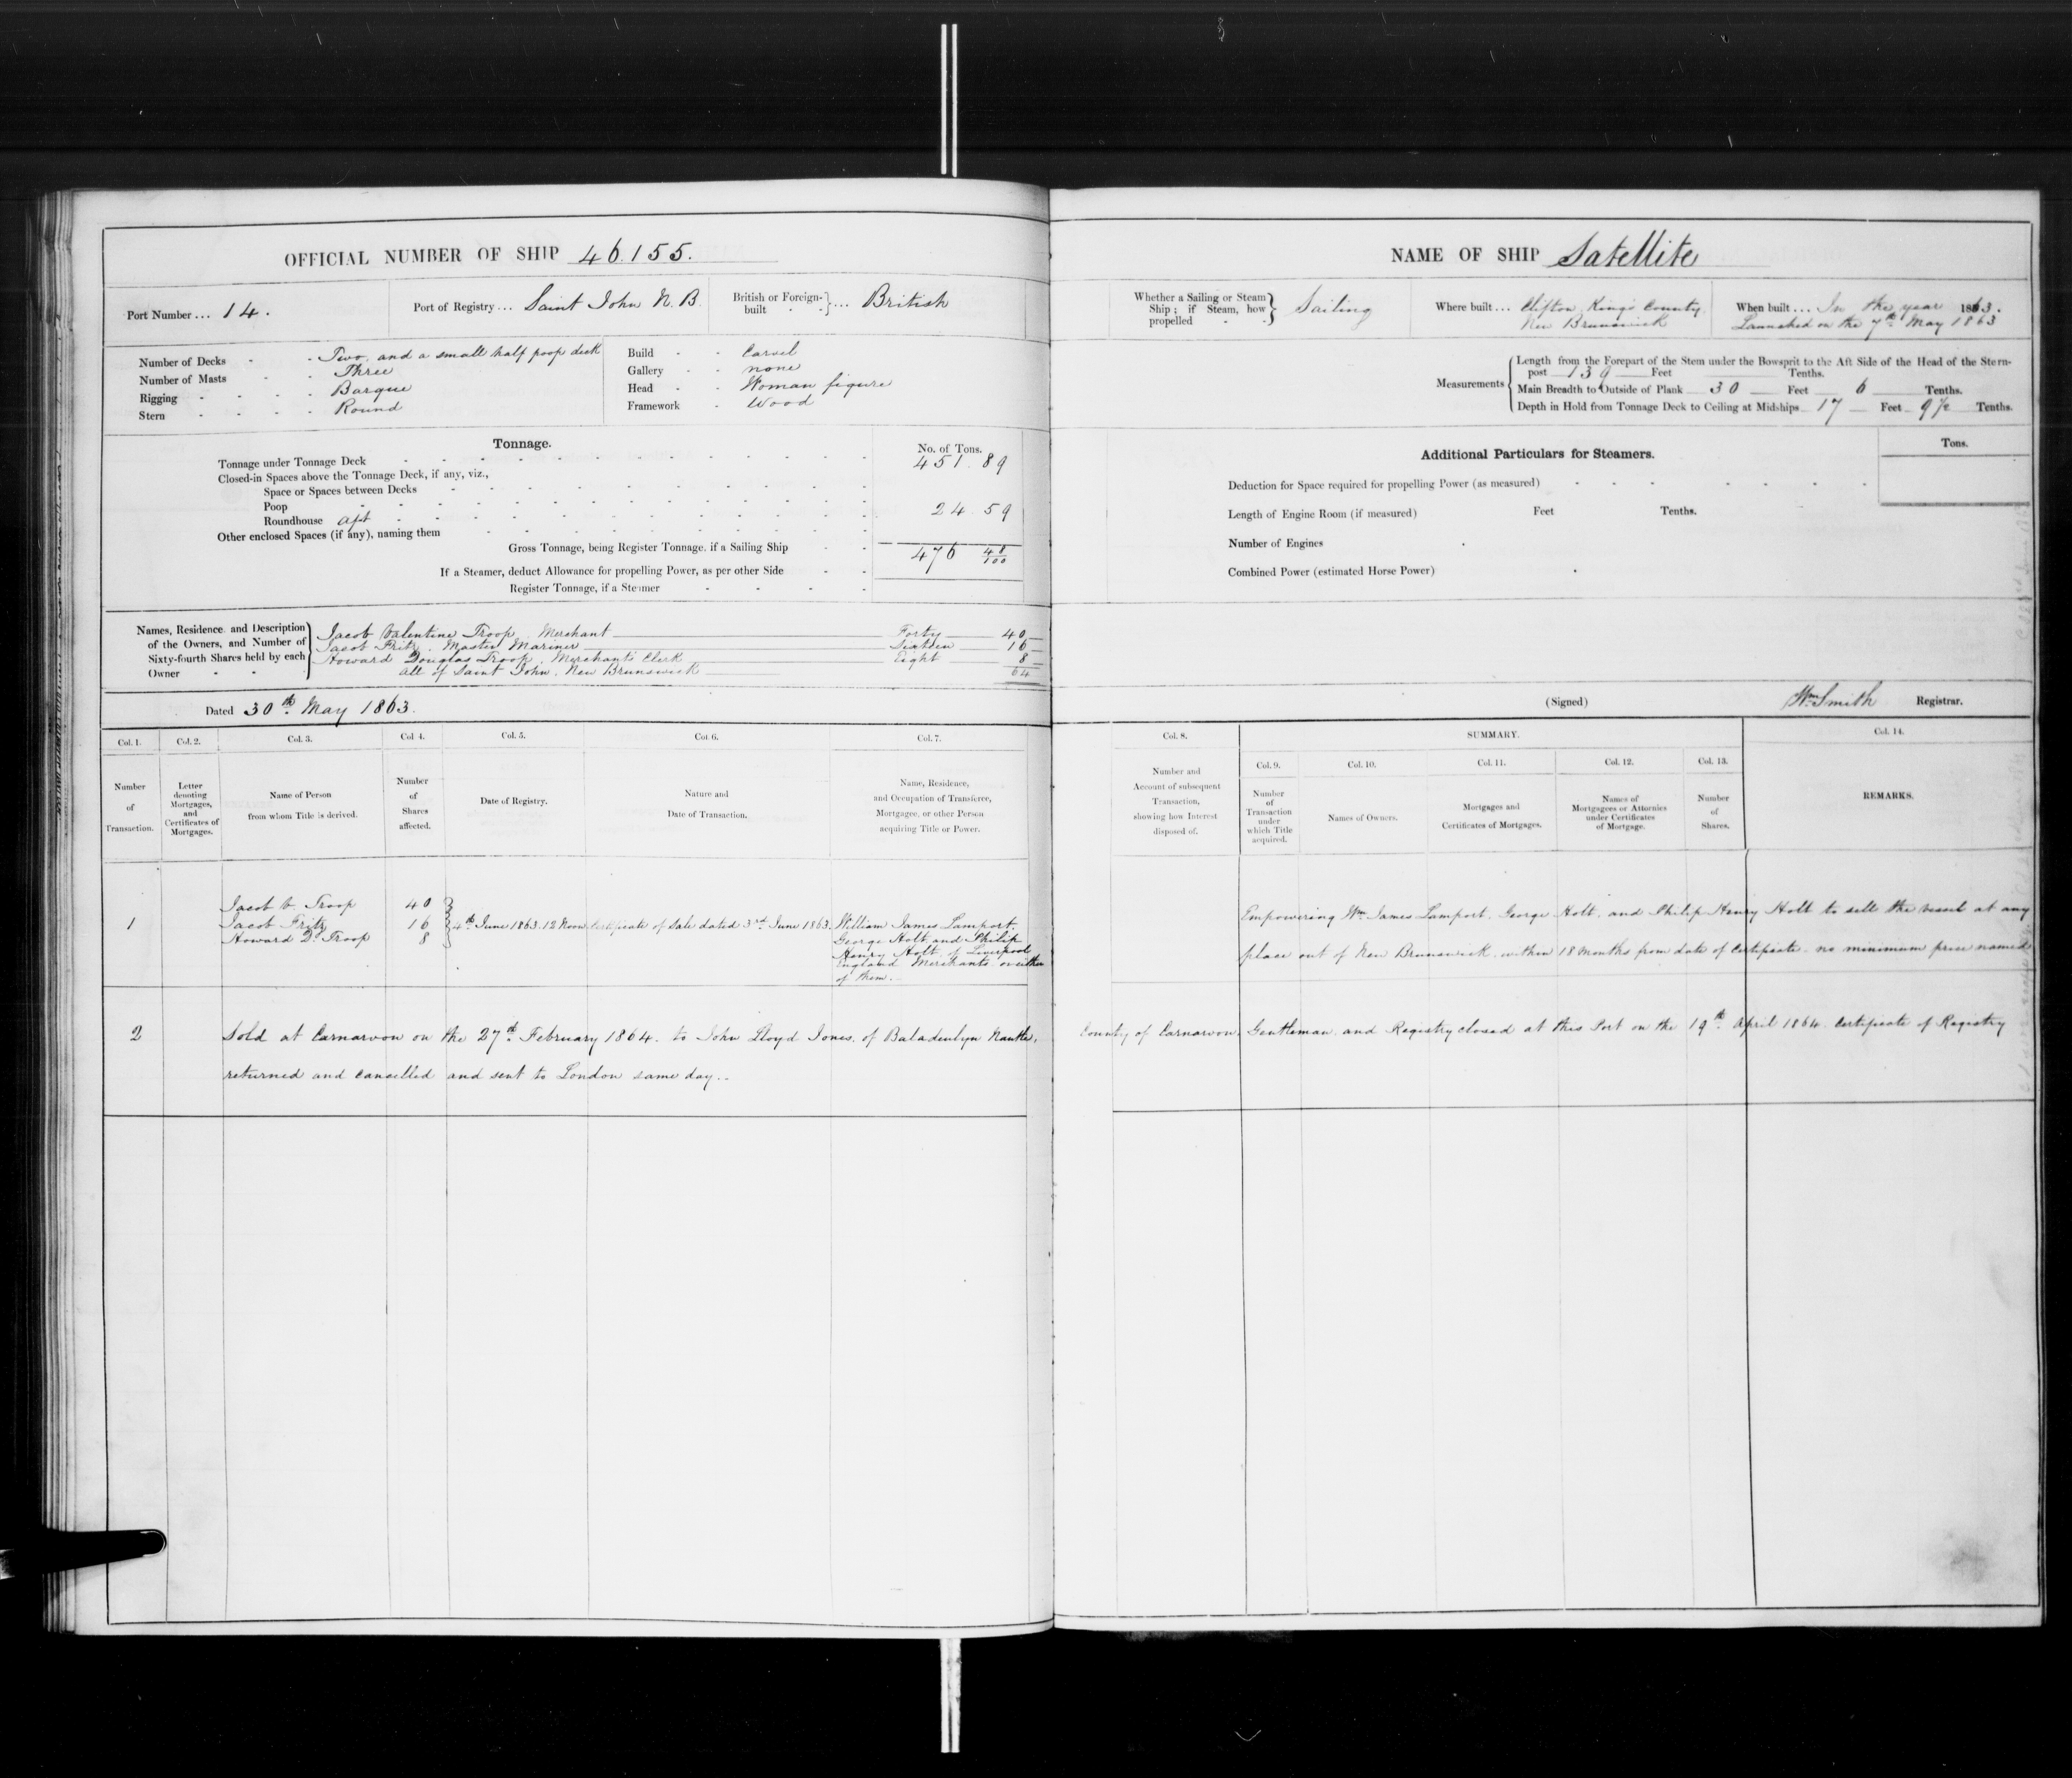 OFFICIAL NUMBER OF SHIP 46.155.
Port Number ... 14.
Port of Registry ... Saint John N.B.
British or Foreign-built } ... British
Number of Decks - - Two, and a small half poop deck
Number of Masts - - Three
Rigging - - - - Barque
Stern - - - - Round
Build - - Carvel
Gallery - - none
Head - - Woman figure
Framework - Wood
Tonnage.
No. of Tons.
Tonnage under Tonnage Deck 451.89
Closed-in Spaces above the Tonnage Deck, if any, viz.,
Space or Spaces between Decks
Poop
Roundhouse aft 24.59
Other enclosed Spaces (if any), naming them
Gross Tonnage, being Register Tonnage, if a Sailing Ship 476 48/100
If a Steamer, deduct Allowance for propelling Power, as per other Side
Register Tonnage, if a Steamer
Names, Residence and Description of the Owners, and Number of Sixty-fourth Shares held by each Owner
Jacob Valentine Troop, Merchant Forty 40
Jacob Fritz, Master Mariner Sixteen 16
Howard Douglas Troop, Merchants Clerk Eight 8
All of Saint John, New Brunswick 64
Dated 30th May 1863.
Col. 1. Col. 2. Col. 3. Col 4. Col. 5. Col. 6. Col. 7.
Number of Transaction.
Letter denoting Mortgages, and Certificates of Mortgages.
Name of Person from whom Title is derived.
Number of Shares affected.
Date of Registry.
Nature and Date of Transaction.
Name, Residence, and Occupation of Transferee, Mortgagee, or other Person acquiring Title or Power.
1
Jacob V. Troop 40
Jacob Fritz 16
Howard D. Troop 8
4th June 1863. 12 Noon
Certificate of Sale dated 3rd June 1863.
William James Lamport,
George Holt and Philip
Henry Holt, of Liverpool
England Merchants or either
of them.
NAME OF SHIP Satellite
Whether a Sailing or Steam Ship; if Steam, how propelled } Sailing
Where built ... Clifton, Kings County
New Brunswick
When built ... In the year 1863.
Launched on the 7th May 1863
Measurements
Length from the Forepart of the Stem under the Bowsprit to the Aft Side of the Head of the Stern-
post 139 Feet Tenths.
Main Breadth to Outside of Plank 30 Feet 6 Tenths.
Depth in Hold from Tonnage Deck to Ceiling at Midships 17 Feet 9½ Tenths.
Additional Particulars for Steamers.
Tons.
Deduction for Space required for propelling Power (as measured)
Length of Engine Room (if measured) Feet Tenths.
Number of Engines
Combined Power (estimated Horse Power)
(Signed) Wm Smith Registrar.
Col. 8. SUMMARY. Col. 14.
Col. 9. Col. 10. Col. 11. Col. 12. Col. 13.
Number and Account of subsequent Transaction, showing how Interest disposed of.
Number of Transaction under which Title acquired.
Names of Owners.
Mortgages and Certificates of Mortgages.
Names of Mortgagees or Attornies under Certificates of Mortgage.
Number of Shares.
REMARKS.
Empowering Wm James Lamport, George Holt, and Philip Henry Holt to sell the vessel at any
place out of New Brunswick, within 18 months from date of Certificate. no minimum price named
2
Sold at Carnarvon on the 27th February 1864. to John Lloyd Jones, of Baladeulyn Nantlle, County of Carnarvon, Gentleman. and Registry closed at this Port on the 19th April 1864. Certificate of Registry
returned and cancelled and sent to London same day.